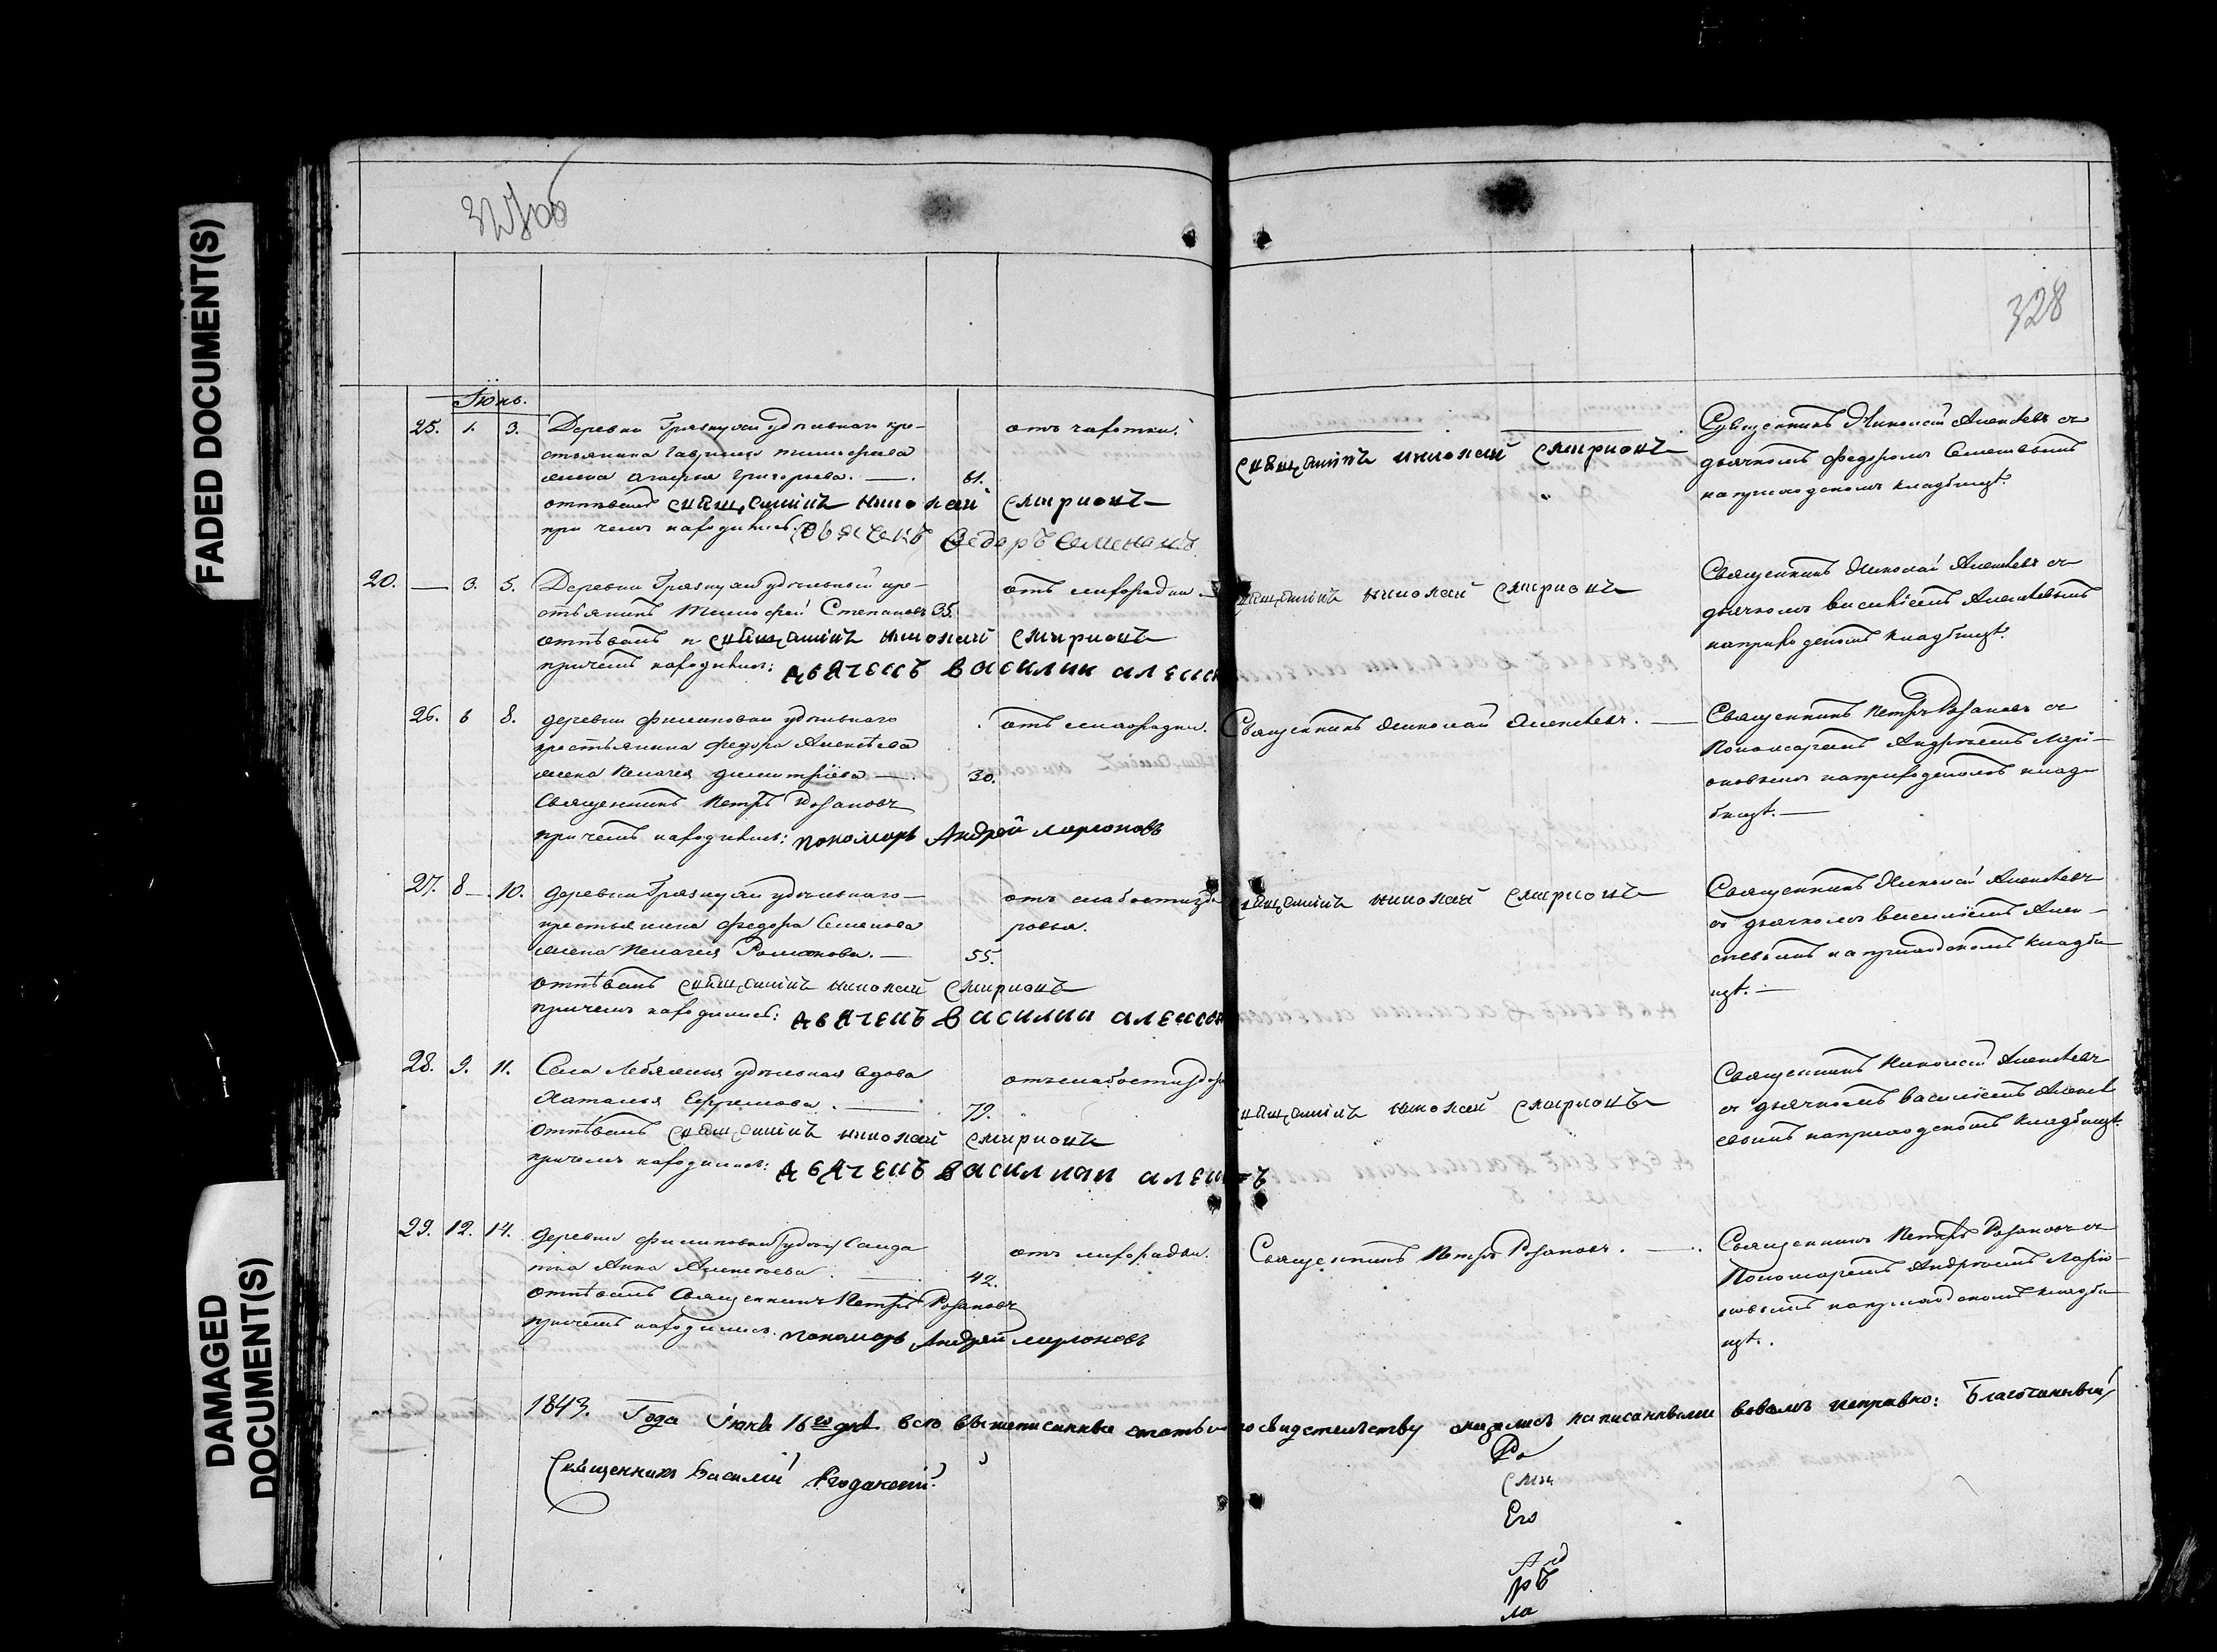 FADED DOCUMENT(S)
DAMAGED
DOCUMENT(S)
328
Іюнь.
25. 1. 3. Деревни Грязнухи удѣльнаго кре-
стьянина Гаврилы Тимофеева
жена Агафья Григорьева. — 61.
отъ чахотки.
отпѣвалъ священникъ николай смирновъ
при чемъ находились: дьячекъ Ѳедоръ Семеновъ
священникъ николай смирновъ
Священникъ Николай Алексѣевъ съ
дьячкомъ Федоромъ Семеновымъ
на приходскомъ кладбищѣ.
20. — 3. 5. Деревни Грязнухи удѣльный кре-
стьянинъ Тимофей Степановъ 35.
отъ лихорадки.
отпѣвалъ священникъ николай смирновъ
причемъ находились: дьячекъ василии
священникъ николай смирновъ
Священникъ Николай Алексѣевъ съ
дьячкомъ Василіемъ Алексѣевымъ
на приходскомъ кладбищѣ.
26. 6 8. деревни Филиповки удѣльнаго
крестьянина Федора Алексѣева
жена Пелагея Димитріева — 30.
отъ лихорадки.
Священникъ Петръ Розановъ
при чемъ находились: пономарь Андрей Ларионовъ
Священникъ Николай Алексѣевъ. —
Священникъ Петръ Розановъ съ
Пономаремъ Андреемъ Лари-
оновымъ на приходскомъ клад-
бищѣ. —
27. 8 — 10. деревни Грязнухи удѣльнаго —
крестьянина Федора Семенова
жена Пелагея Романова. — 55.
отъ слабости здо
ровья.
отпѣвалъ священникъ николай смирновъ
причемъ находились: дьячекъ василии
священникъ николай смирновъ
Священникъ Николай Алексѣевъ
съ дьячкомъ Василіемъ Алек-
сѣевымъ на приходскомъ кладби-
щѣ. —
28. 9. 11. Села Лебяжья удѣльная вдова
Наталья Ефремова. — 79.
отъ слабости здоро
отпѣвалъ священникъ николай смирновъ
причемъ находились: дьячекъ василии
священникъ николай смирновъ
Священникъ Николай Алексѣевъ
съ дьячкомъ Василіемъ Алексѣ
евымъ на приходскомъ кладбищѣ.
29. 12. 14. деревни Филиповки Солда
тка Анна Алексѣева. — 42.
отъ лихорадки.
отпѣвалъ Священникъ Петръ Розановъ
причемъ находились: пономарь Андрей Ларионовъ
Священникъ Петръ Розановъ. —
Священникъ Петръ Розановъ съ
Пономаремъ Андреемъ Ларiо-
новымъ на приходскомъ кладби-
щѣ.
1843. Года Іюня 16го дня всѣ вышеписанные статьи по свидетельству оказались написанными во всемъ исправно: Благочинный
Священникъ Василій
Ро
Сми
Его